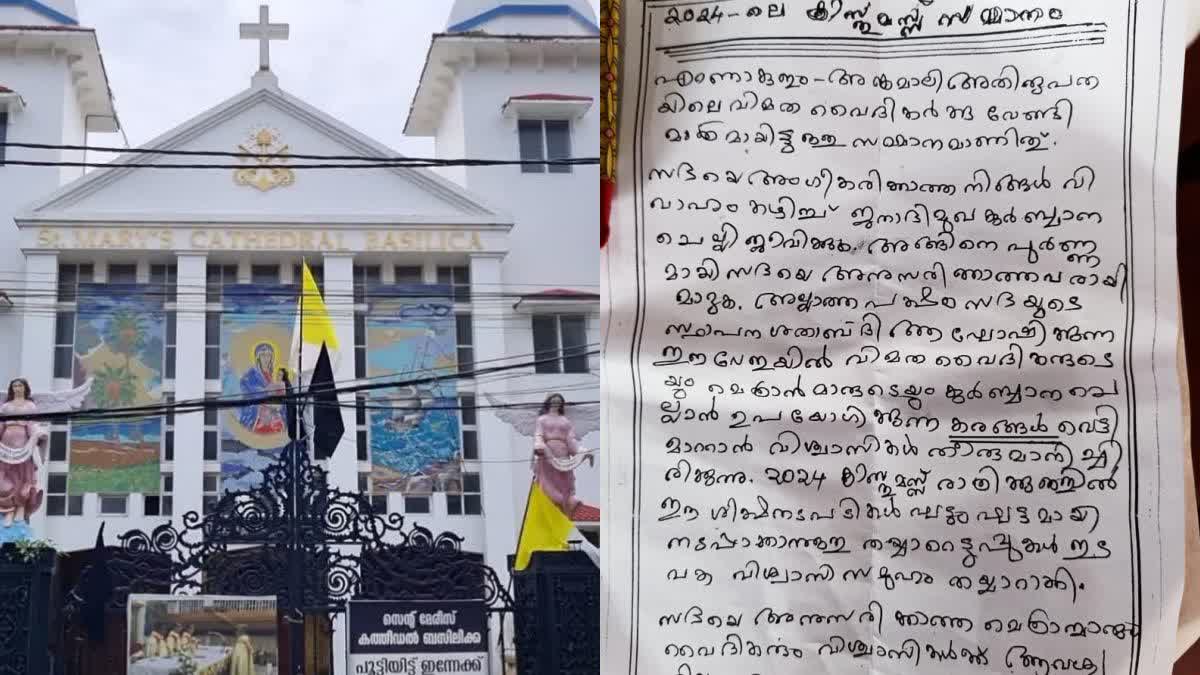 St. MARY'S CATHEDRAL BASILICA
സെന്റ് മേരീസ്
കത്തീഡൽ ബസിലിക്ക
പൂട്ടിയിട്ട് ഇന്നേക്ക്
2024-ലെ ക്രിസ്തുമസ്സ് സമ്മാനം
എറണാകുളം-അങ്കമാലി അതിരൂപത
യിലെ വിമത വൈദികർക്കു വേണ്ടി
മാത്രമായിട്ടുള്ള സമ്മാനമാണിത്.
സഭയെ അംഗീകരിക്കാത്ത നിങ്ങൾ വി
വാഹം കഴിച്ച് ജനാഭിമുഖ കുർബ്ബാന
ചെല്ലി ജീവിക്കുക. അങ്ങിനെ പൂർണ്ണ
മായി സഭയെ അനുസരിക്കാത്തവരായി
മാറുക. അല്ലാത്ത പക്ഷം സഭയുടെ
സ്ഥാപന ശതാബ്ദി ആഘോഷിക്കുന്ന
ഈ വേളയിൽ വിമത വൈദികരുടെ
യും മെത്രാൻമാരുടെയും കുർബ്ബാന ചെ
ല്ലാൻ ഉപയോഗിക്കുന്ന കരങ്ങൾ വെട്ടി
മാറ്റാൻ വിശ്വാസികൾ തീരുമാനിച്ചി
രിക്കുന്നു. 2024 ക്രിസ്തുമസ്സ് രാത്രി കുർബ്ബാനയിൽ
ഈ ശിക്ഷനടപടികൾ ഘട്ടം ഘട്ടമായി
നടപ്പാക്കാനുള്ള തയ്യാറെടുപ്പുകൾ ഇട
വക വിശ്വാസി സമൂഹം തയ്യാറാക്കി.
സഭയെ അനുസരിക്കാത്ത മെത്രാന്മാരും
വൈദികരും വിശ്വാസികൾക്ക് ആവശ്യ